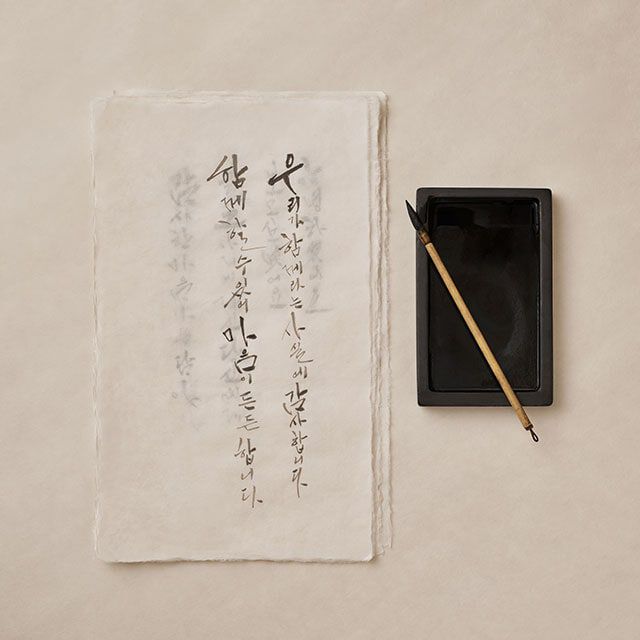 우리가 함께라는 사실에 감사합니다
함께 할 수 있어 마음이 든든합니다